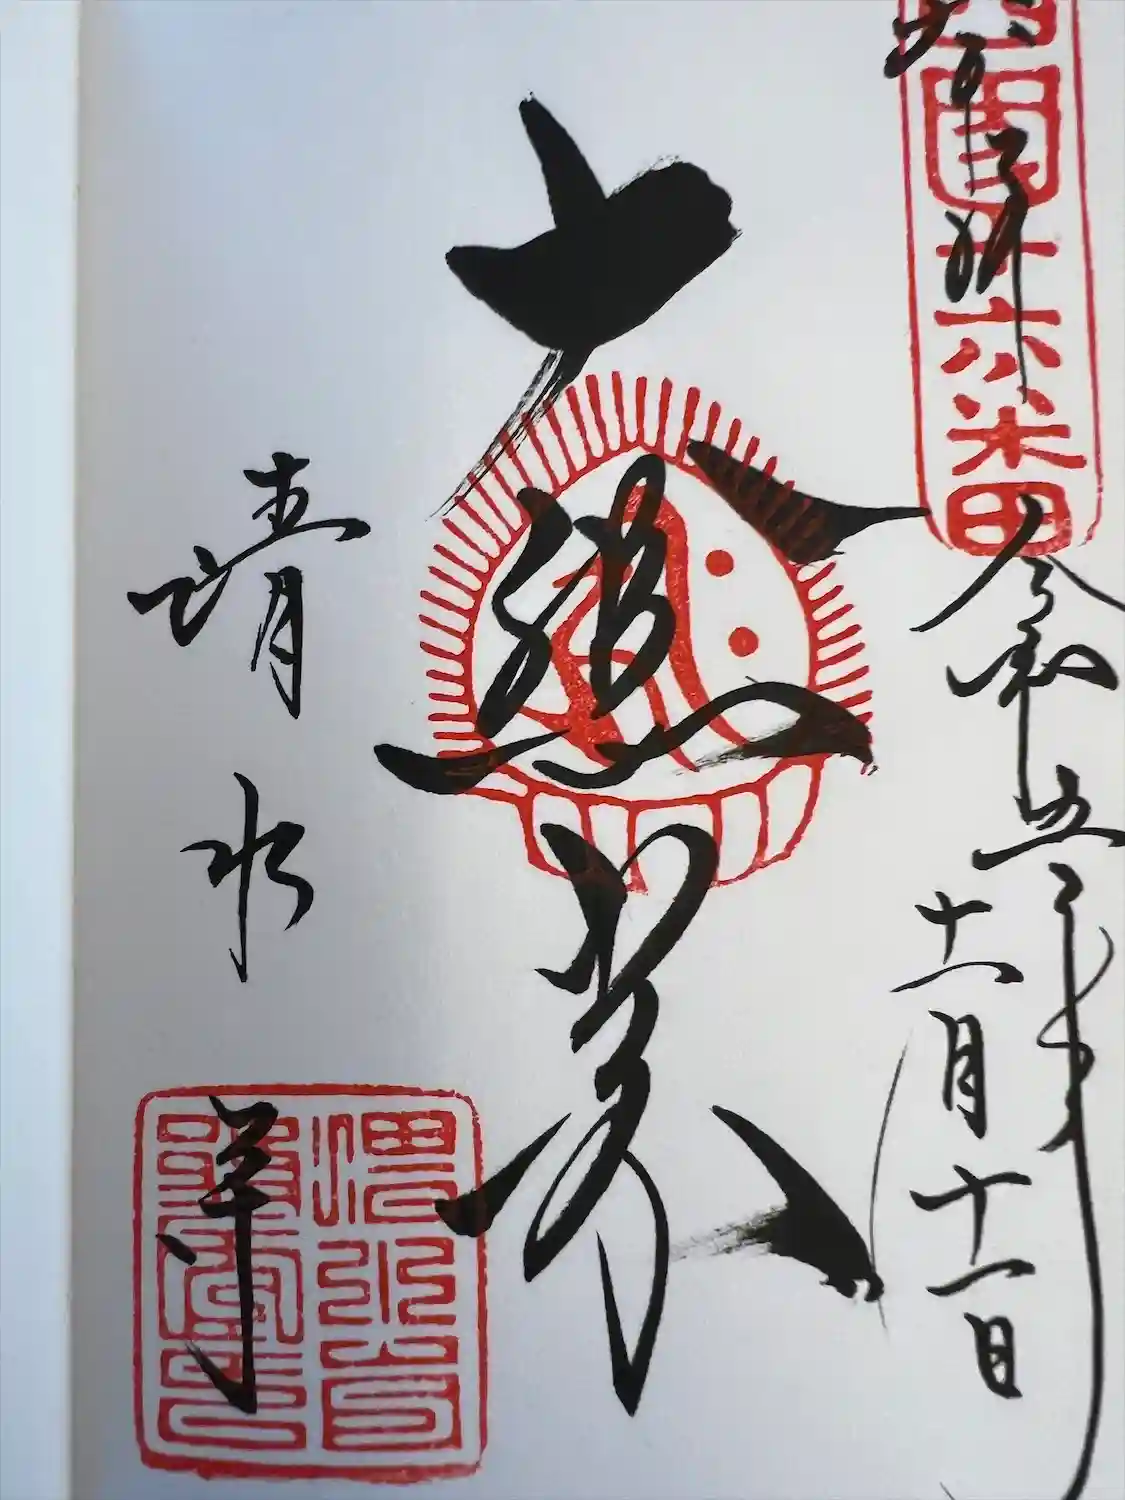 西国十六番
奉拝
令和五年
十一月十一日
大悲閣
清水寺